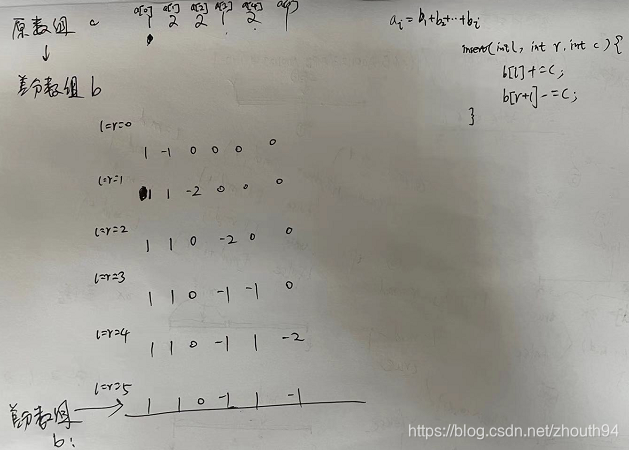 a[0] a[1] a[2] a[3] a[4] a[5]
原数组 a 1 2 2 1 2 1
↓
差分数组 b
aᵢ = b₁+b₂+…+bᵢ
insert(int l, int r, int c){
b[l]+=c;
b[r+1]-=c;
}
l=r=0
1 -1 0 0 0 0
l=r=1
1 1 -2 0 0 0
l=r=2
1 1 0 -2 0 0
l=r=3
1 1 0 -1 -1 0
l=r=4
1 1 0 -1 1 -2
l=r=5
1 1 0 -1 1 -1
差分数组 →
b:
https://blog.csdn.net/zhouth94